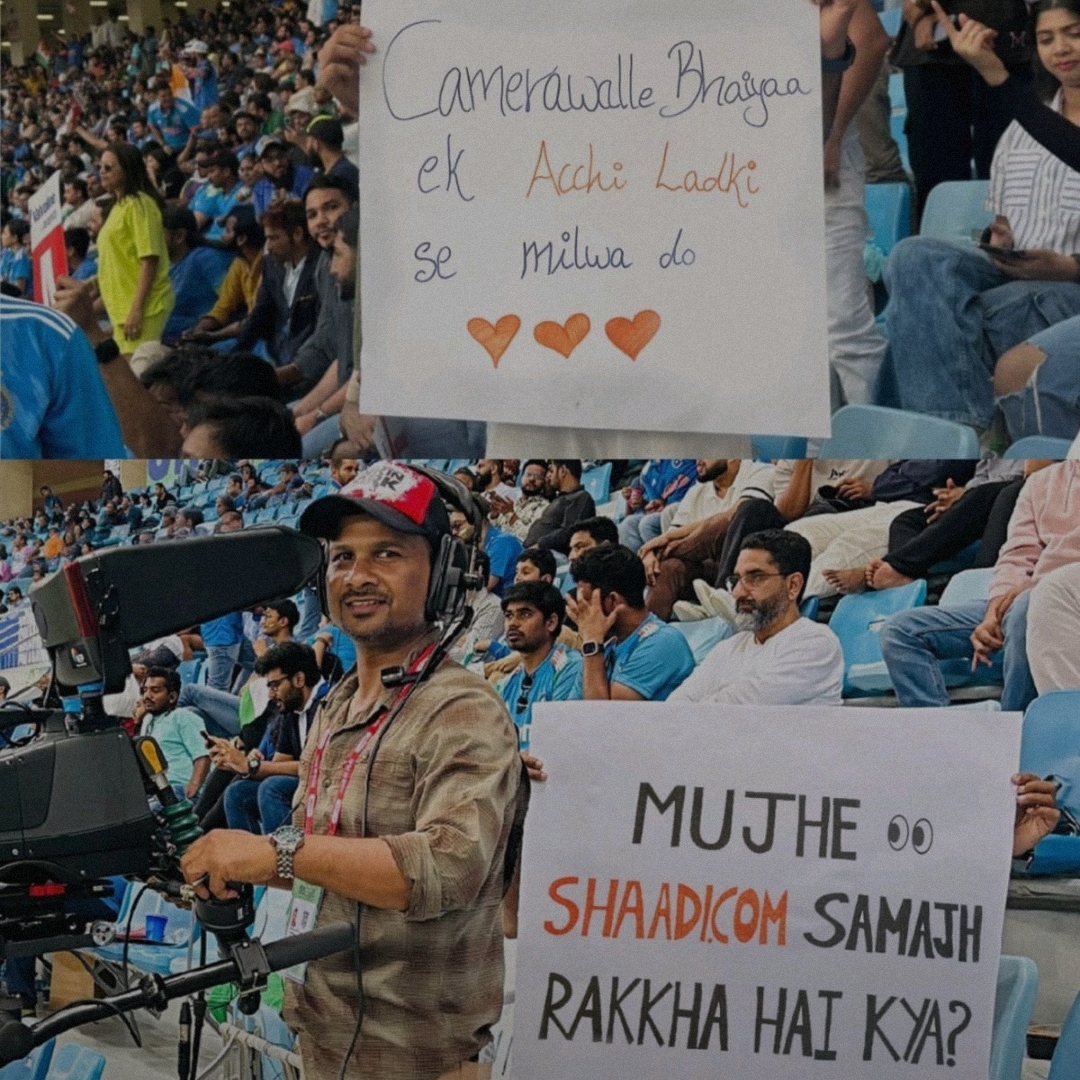 Camerawalle Bhaiyaa
ek Acchi Ladki
se milwa do
MUJHE
SHAADI.COM SAMAJH
RAKKHA HAI KYA?